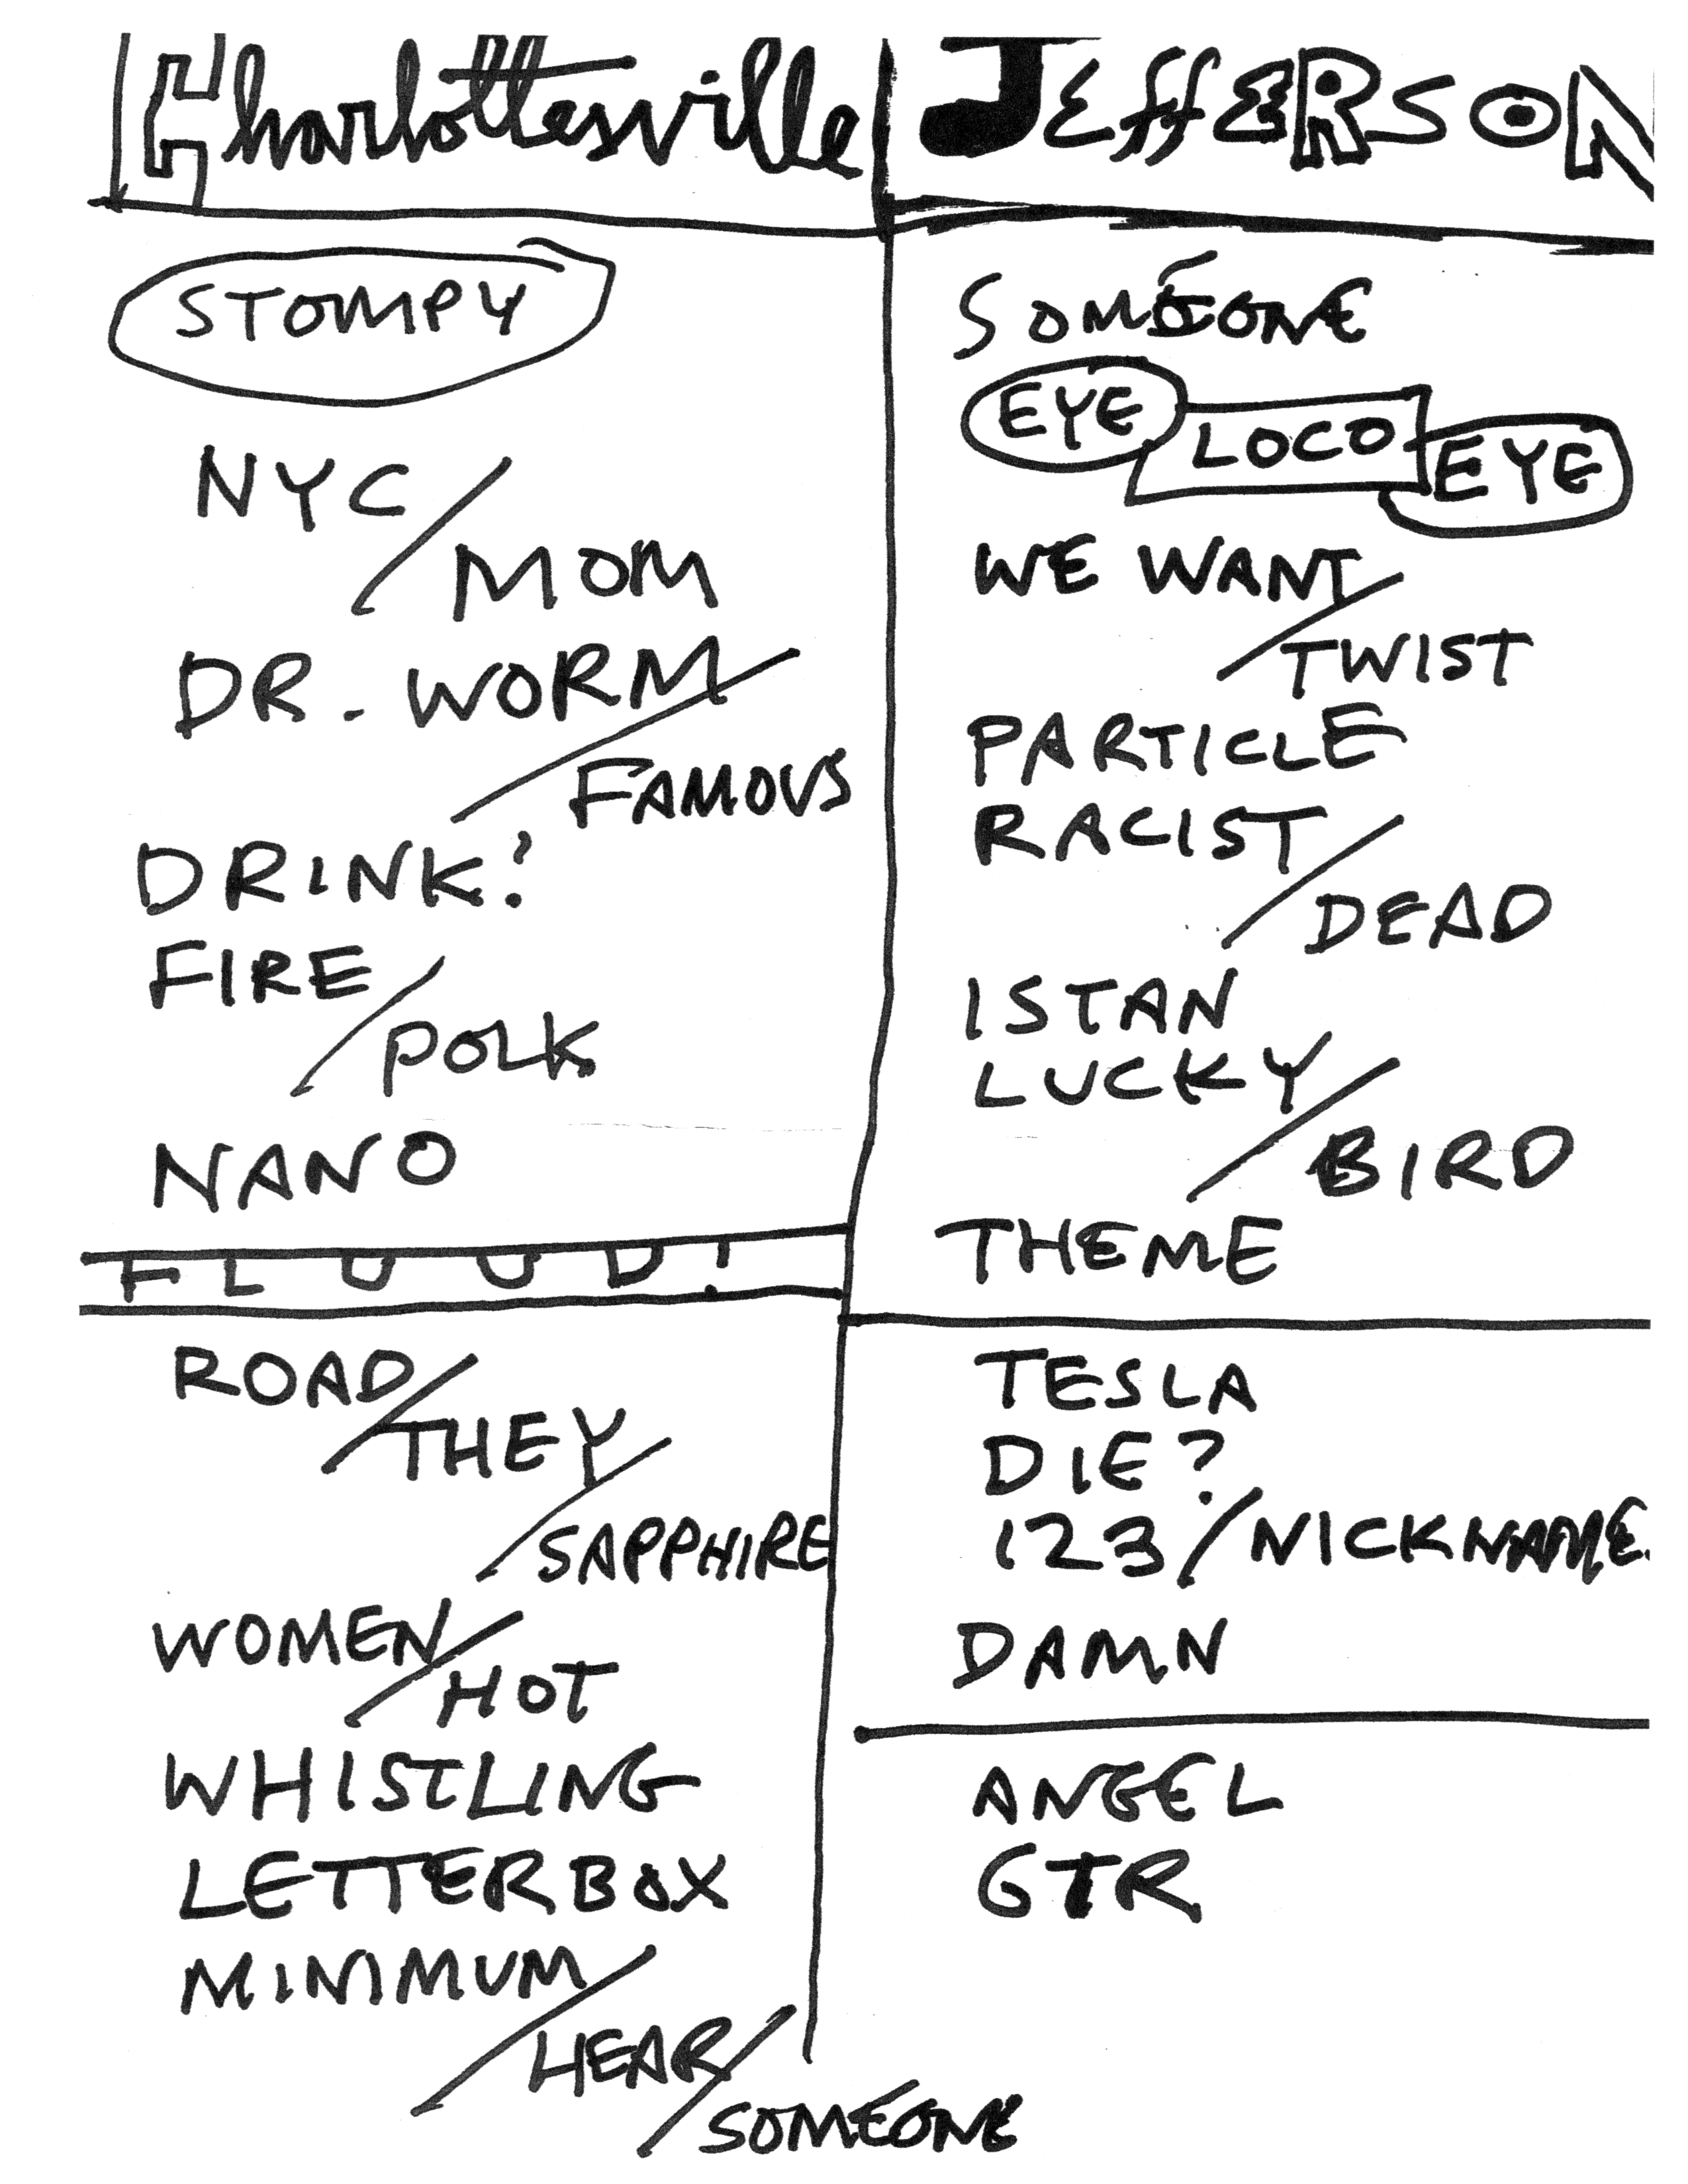 Charlottesville
STOMPY
NYC/
MOM
DR. WORM/
FAMOUS
DRINK?
FIRE/
POLK
NANO
FLOOD!
ROAD/
THEY/
SAPPHIRE
WOMEN/
HOT
WHISTLING
LETTERBOX
MINIMUM/
HEAR/
SOMEONE
JEffERSON
SOMEONE
EYE LOCO EYE
WE WANT/
TWIST
PARTICLE
RACIST/
DEAD
ISTAN
LUCKY/
BIRD
THEME
TESLA
DIE?
123/NICKNAME
DAMN
ANGEL
GTR